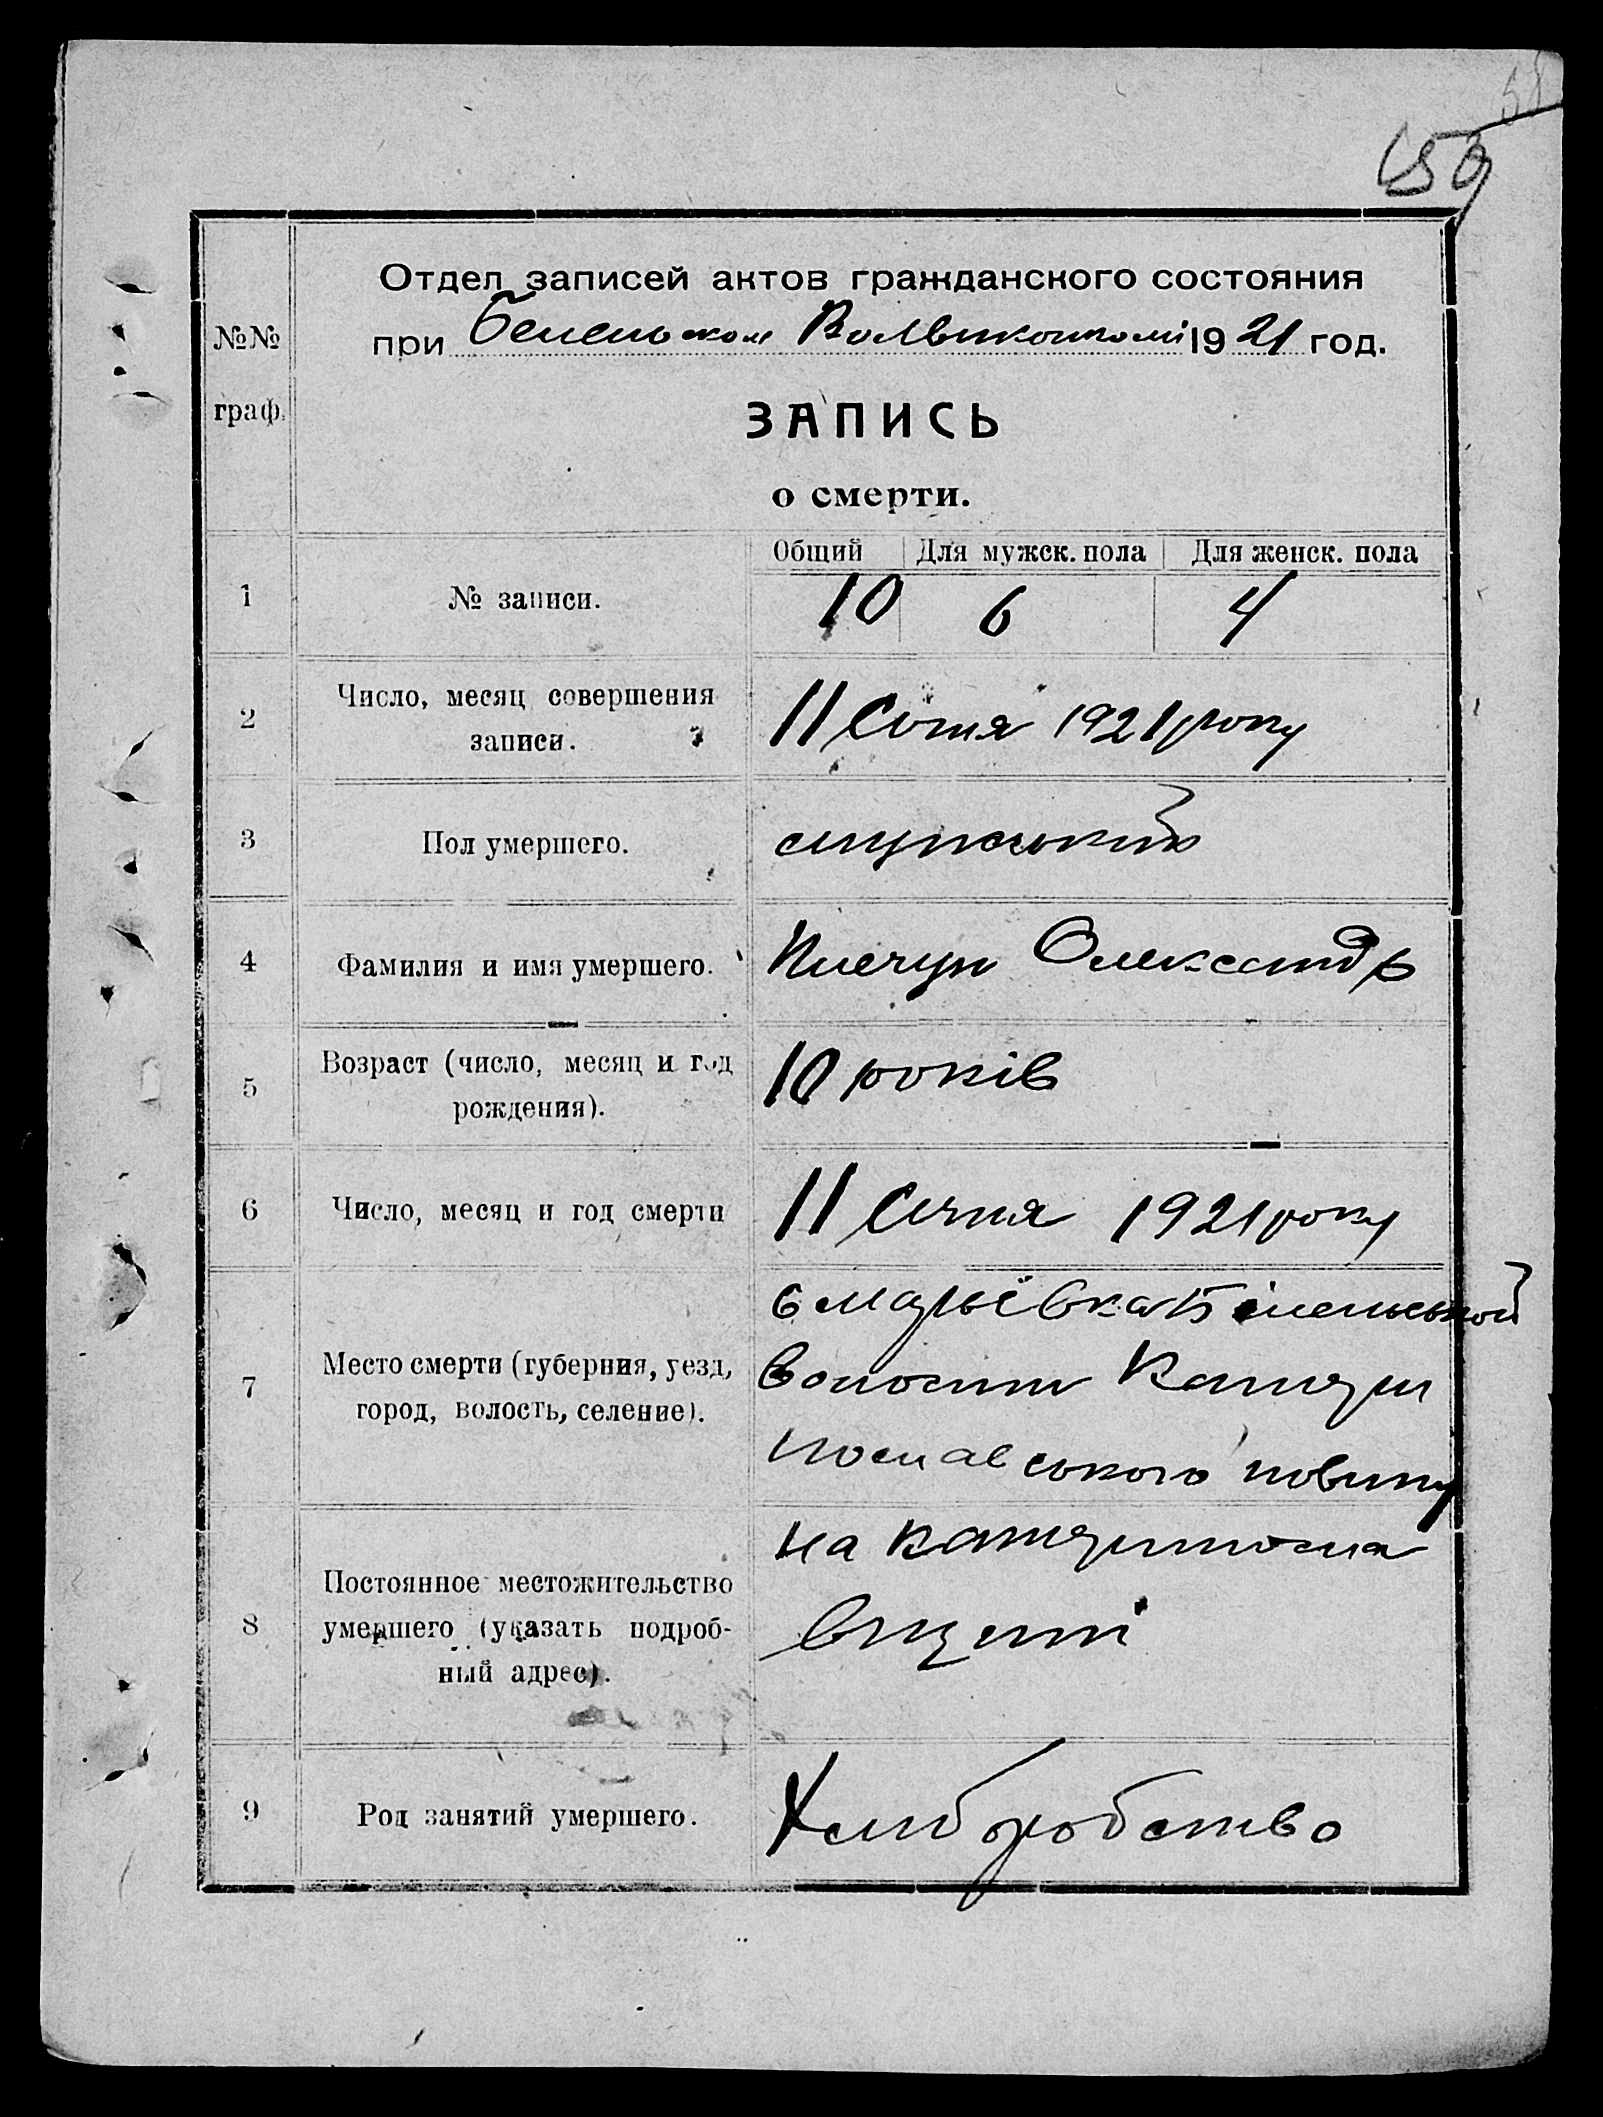 59
№№ граф.
Отдел записей актов гражданского состояния
при Волвиконкомі 1921 год.
ЗАПИСЬ
о смерти.
Общий Для мужск. пола Для женск. пола
1 № записи. 10 6 4
2 Число, месяц совершения записи. 11 Січня 1921 року
3 Пол умершего. мужський
4 Фамилия и имя умершего. Олександр
5 Возраст (число, месяц и год рождения). 10 років
6 Число, месяц и год смерти 11 Січня 1921 року
7 Место смерти (губерния, уезд, город, волость, селение).
с Марьївка Біленьської
волости Катери
нославського повіту
8 Постоянное местожительство умершего (указать подробный адрес).
на Катериносла
вщині
9 Род занятий умершего. Хлиборобство